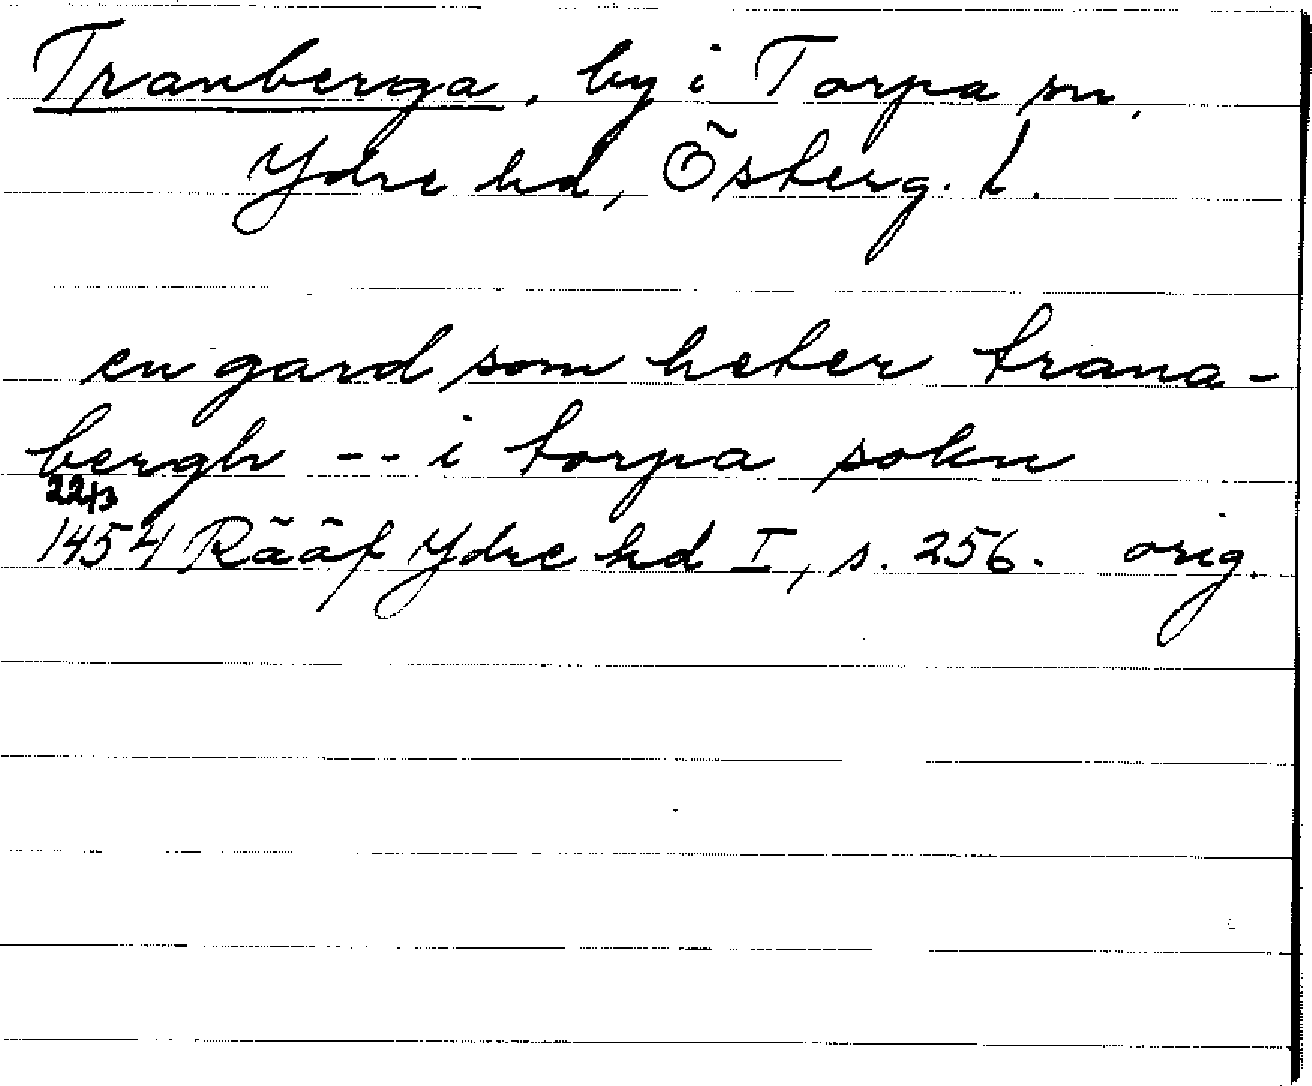 Tranberga, by i Torpa sn,
Ydre hd, Österg. l.
en gard som heter trana-
bergh -- i torpa sokn
22/3
1454 Rääf Ydre hd I, s. 256. orig.